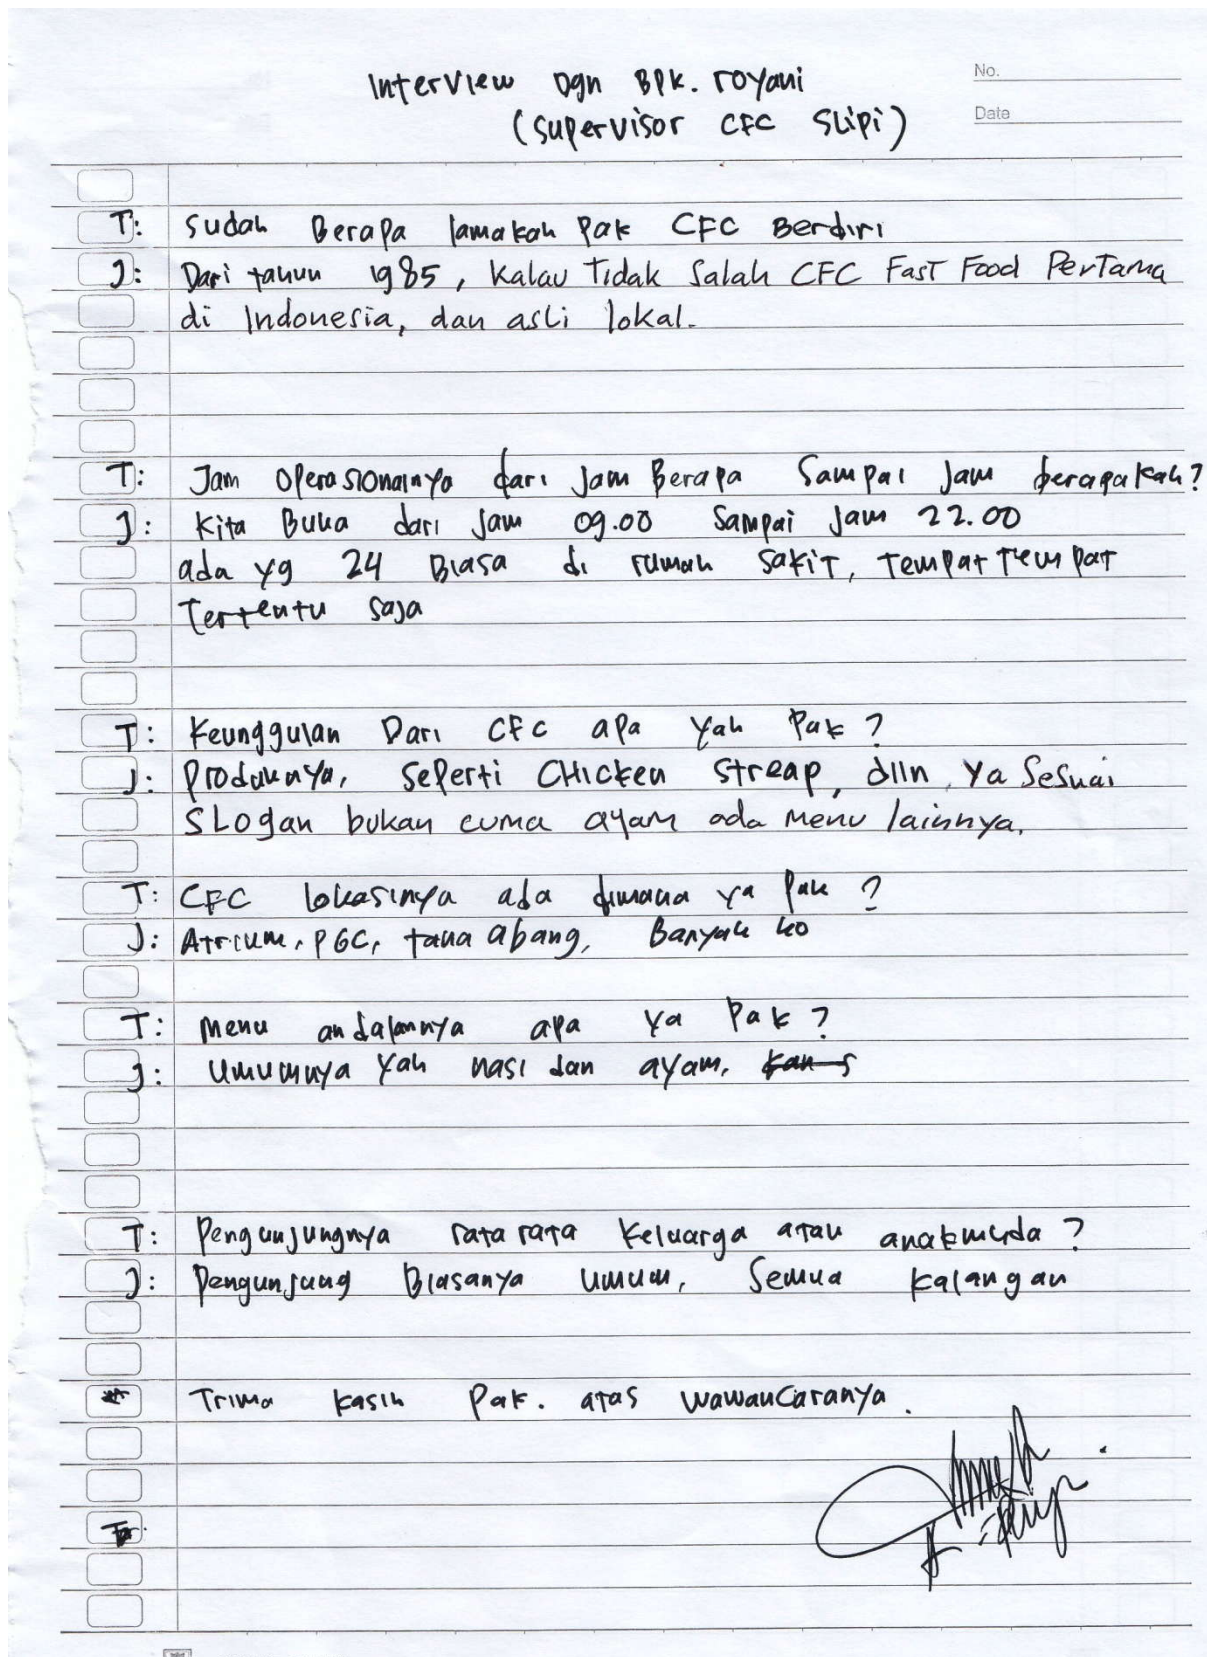 Interview Dgn BPK. royani
No.
(Supervisor CFC SLipi)
Date
T: Sudah Berapa lamakah Pak CFC Berdiri
J: Dari tahun 1985, Kalau Tidak Salah CFC FasT Food PerTama
di Indonesia, dan asli lokal.
T: Jam Operasionalnya dari Jam Berapa Sampai Jam berapakah?
J: Kita Buka dari Jam 09.00 Sampai Jam 22.00
ada yg 24 Biasa di rumah SakiT, TempaT TempaT
Tertentu Saja
T: Keunggulan Dari CFC apa Yah Pak?
J: Produknya, Seperti CHicken Streap, dlln, Ya Sesuai
SLogan bukan cuma ayam ada Menu lainnya.
T: CFC lokasinya ada dimana ya Pak?
J: Atrium, PGC, tana abang, Banyak ko
T: Menu andalannya apa Ya Pak?
J: Umumnya Yah nasi dan ayam,
T: Pengunjungnya rata rata Keluarga atau anakmuda?
J: Pengunjung Biasanya umum, Semua kalangan
Trima kasih Pak. atas WawanCaranya.